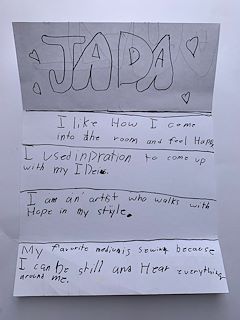 JADA
I like How I come
into the room and feel Happy
I used inpration to come up
with my IDeas.
I am an artist who walks with
Hope in my style.
My favorite medium is sewing because
I can be still and Hear everything
around me.